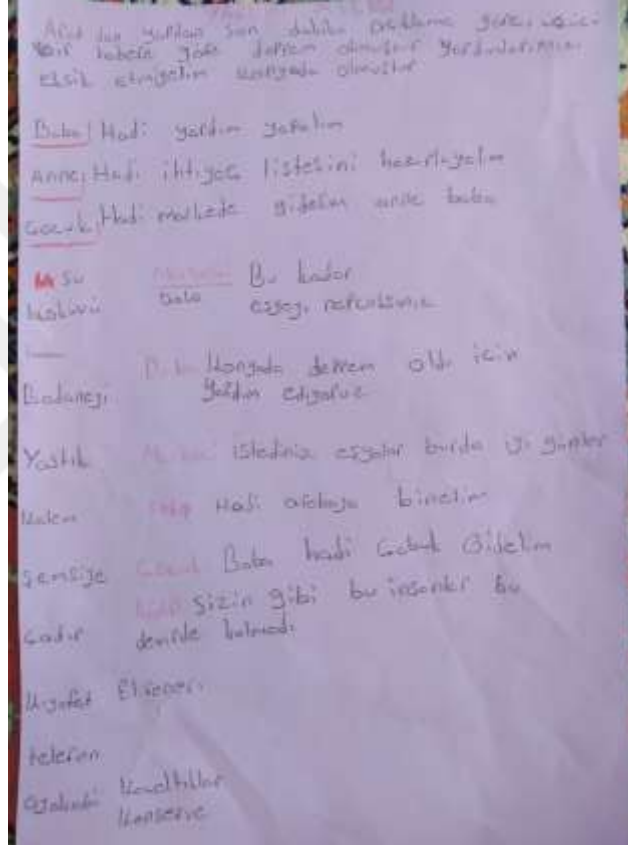 Afad dan yapılan son dakika açıklama göre
bir habere göre deprem olmuştur yardımlarımızı
eksik etmiyelim Konyada olmuştur
Baba: Hadi yardım yapalım
Anne: Hadi ihtiyaç listesini hazırlayalım
Çocuk: Hadi markede gidelim anne baba
Su Bu kadar
baba eşyayı napcaksınız
Baba Konyada deprem oldu için
Battaneyi yardım ediyoruz
Yastık istediniz eşyalar burda iyi günler
Kalem Hadi arabaya binelim
Şemsiye Çocuk Baba hadi Çabuk Gidelim
Sizin gibi bu insanlar bu
Çadır devirde kalmadı
Kıyafet
telefon
Ayakkabı
Konserve